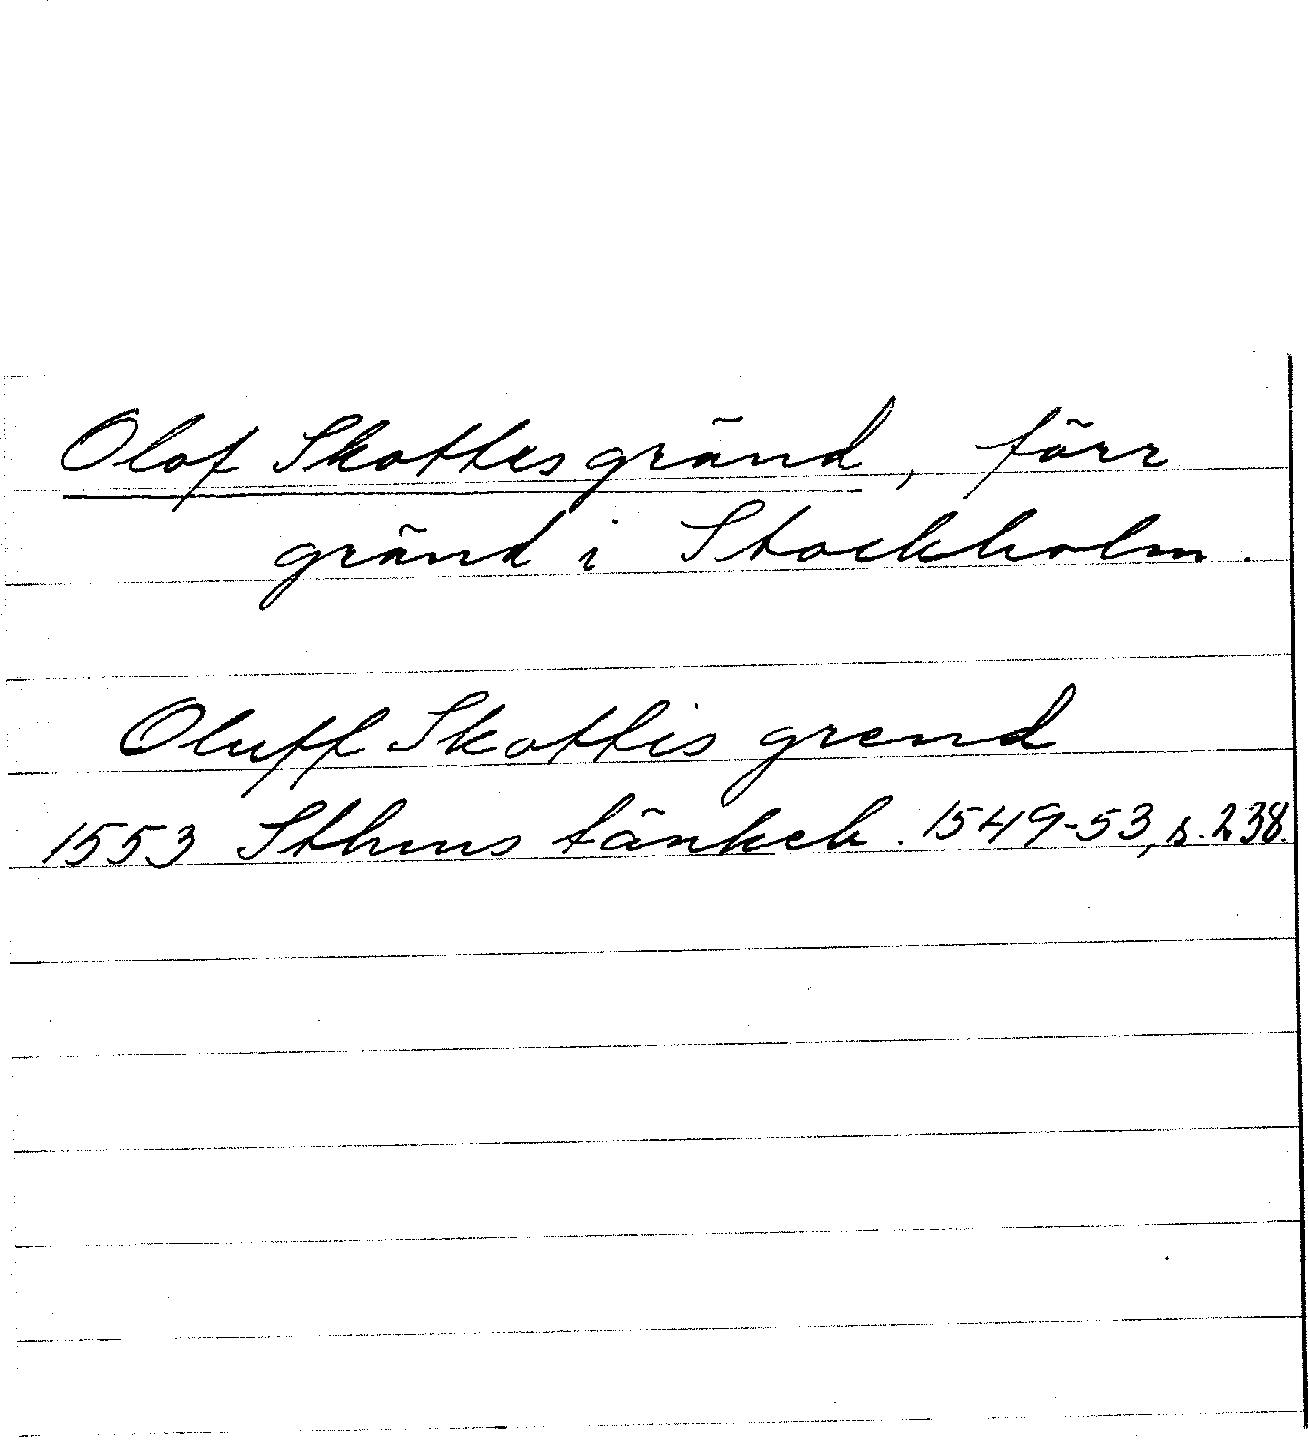 Olof Skottes gränd, förr
gränd i Stockholm.
Oluff Skottis grend
1553 Sthms tänkeb. 1549-53, s. 238.